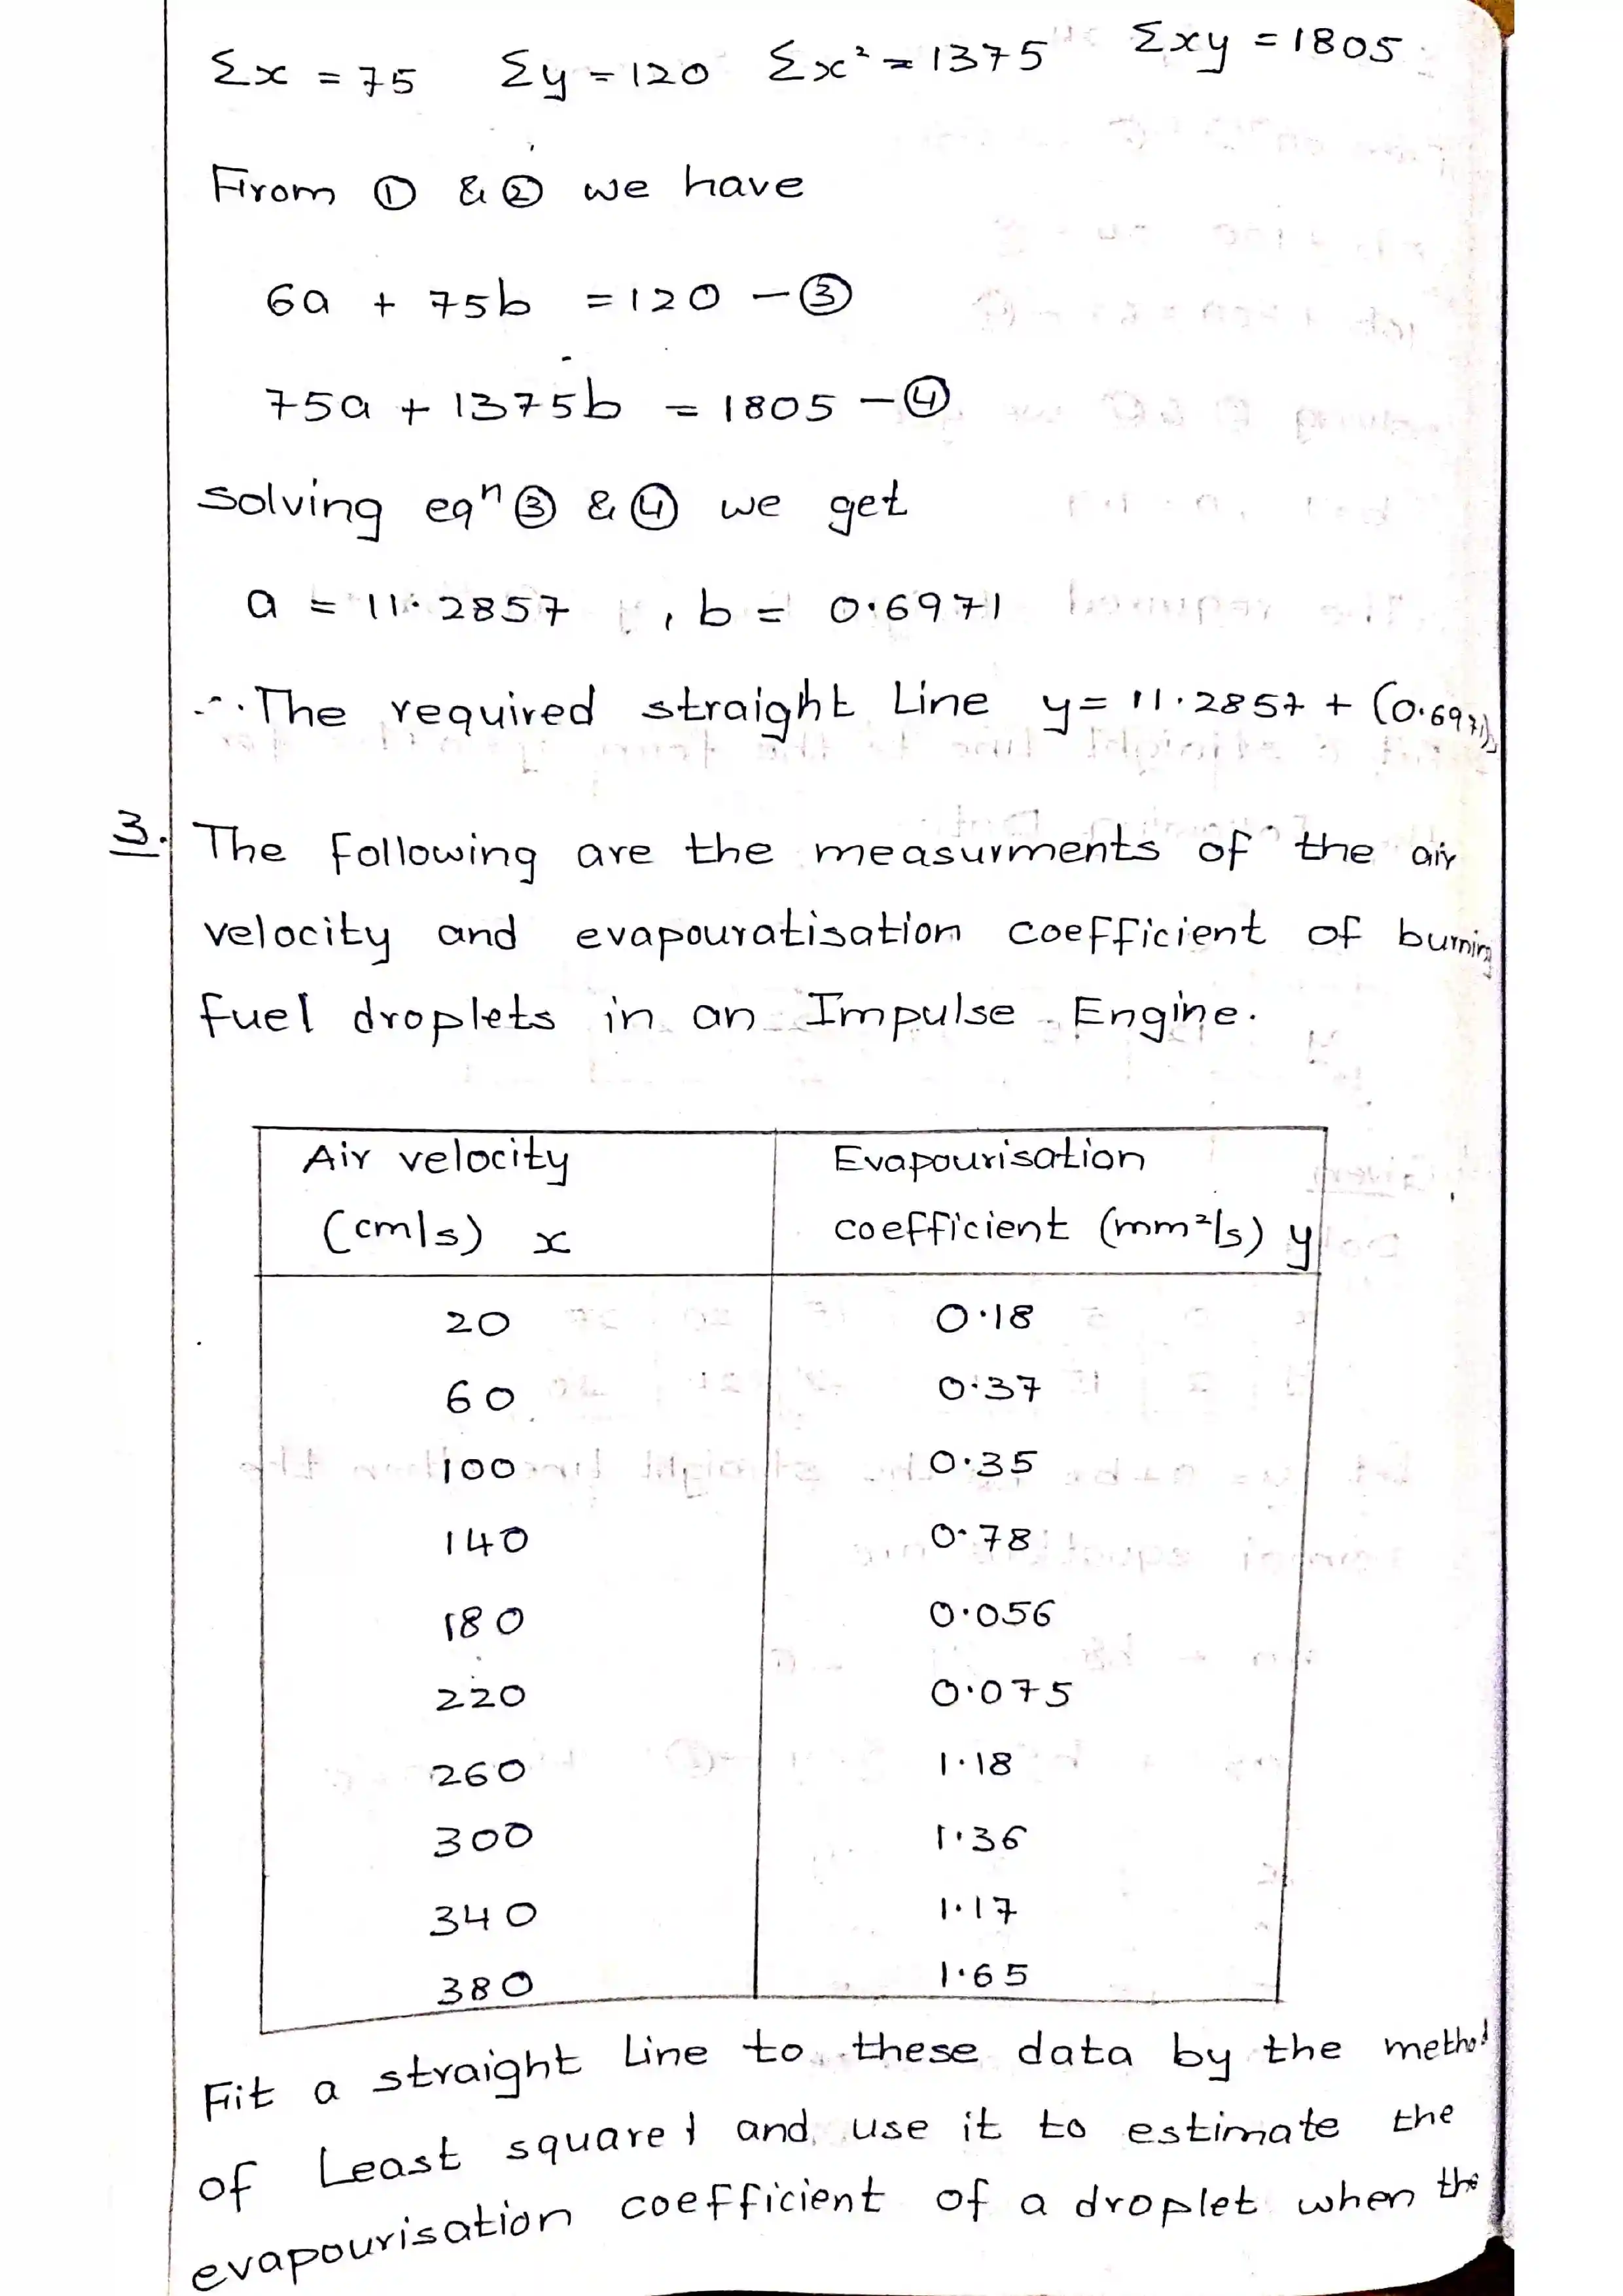 Σx = 75 Σy = 120 Σx² = 1375 Σxy = 1805
From ① & ② we have
6a + 75b = 120 — ③
75a + 1375b = 1805 — ④
solving eqⁿ ③ & ④ we get
a = 11.2857 , b = 0.6971
∴ The required straight Line y = 11.2857 + (0.6971)
3. The following are the measurments of the air
velocity and evapouratisation coefficient of burning
fuel droplets in an Impulse Engine.
Air velocity Evapourisation
(cm/s) x coefficient (mm²/s) y
20 0.18
60 0.37
100 0.35
140 0.78
180 0.056
220 0.075
260 1.18
300 1.36
340 1.17
380 1.65
Fit a straight Line to these data by the method
of Least square & and use it to estimate the
evapourisation coefficient of a droplet when the